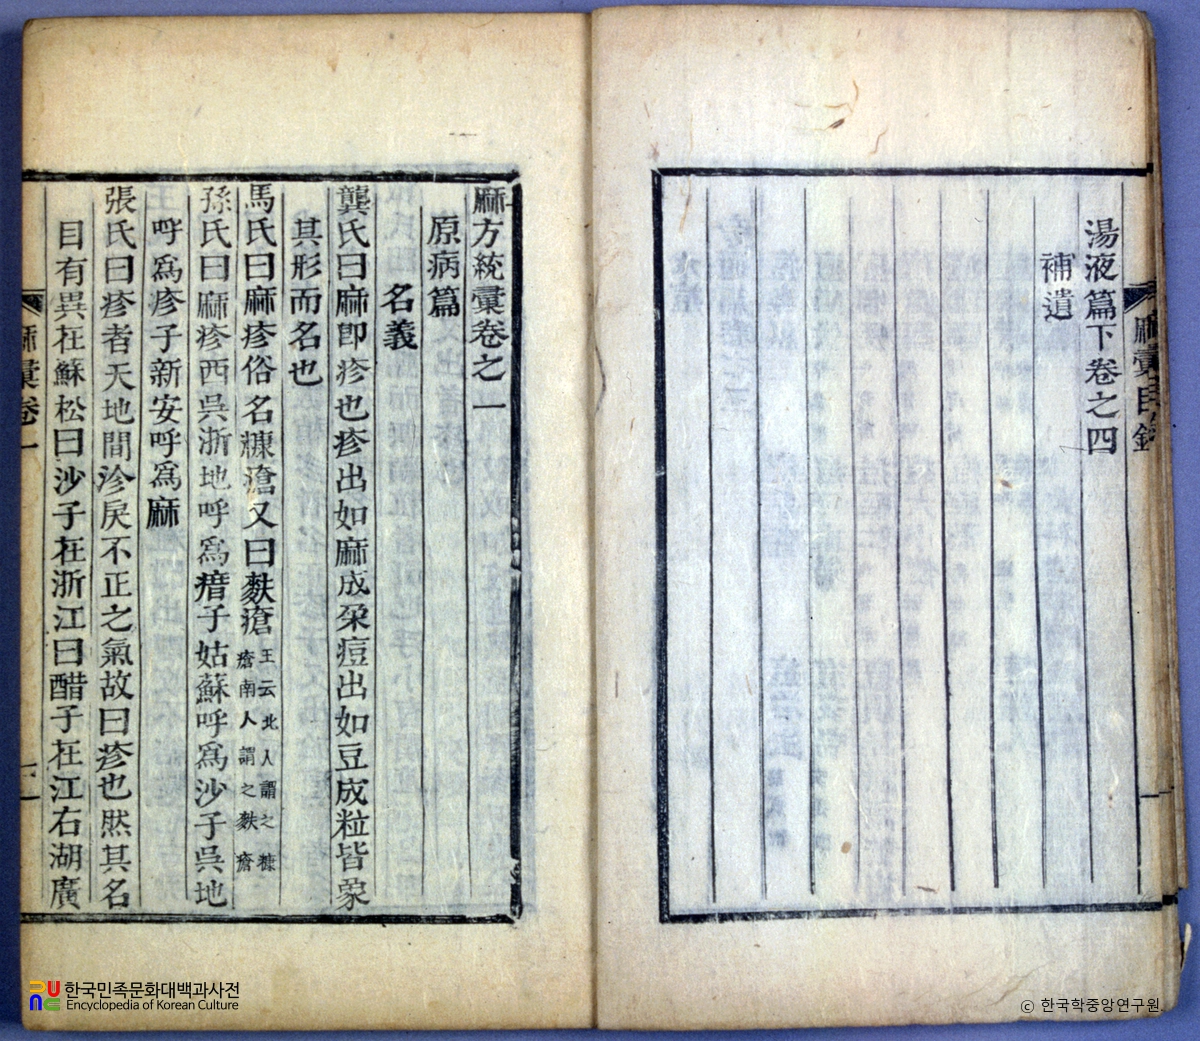 麻彙目錄
湯液篇下卷之四
補遺
麻方統彙卷之一
原病篇
名義
龔氏曰麻即疹也疹出如麻成朶痘出如豆成粒皆象
其形而名也
馬氏曰麻疹俗名糠瘡又曰麩瘡王云北人謂之糠
瘡南人謂之麩瘡
孫氏曰麻疹西吳浙地呼爲㾦子姑蘇呼爲沙子吳地
呼爲疹子新安呼爲麻
張氏曰疹者天地間沴戾不正之氣故曰疹也然其名
目有異在蘇松曰沙子在浙江曰醋子在江右湖廣
麻彙卷一
한국민족문화대백과사전
Encyclopedia of Korean Culture
ⓒ 한국학중앙연구원